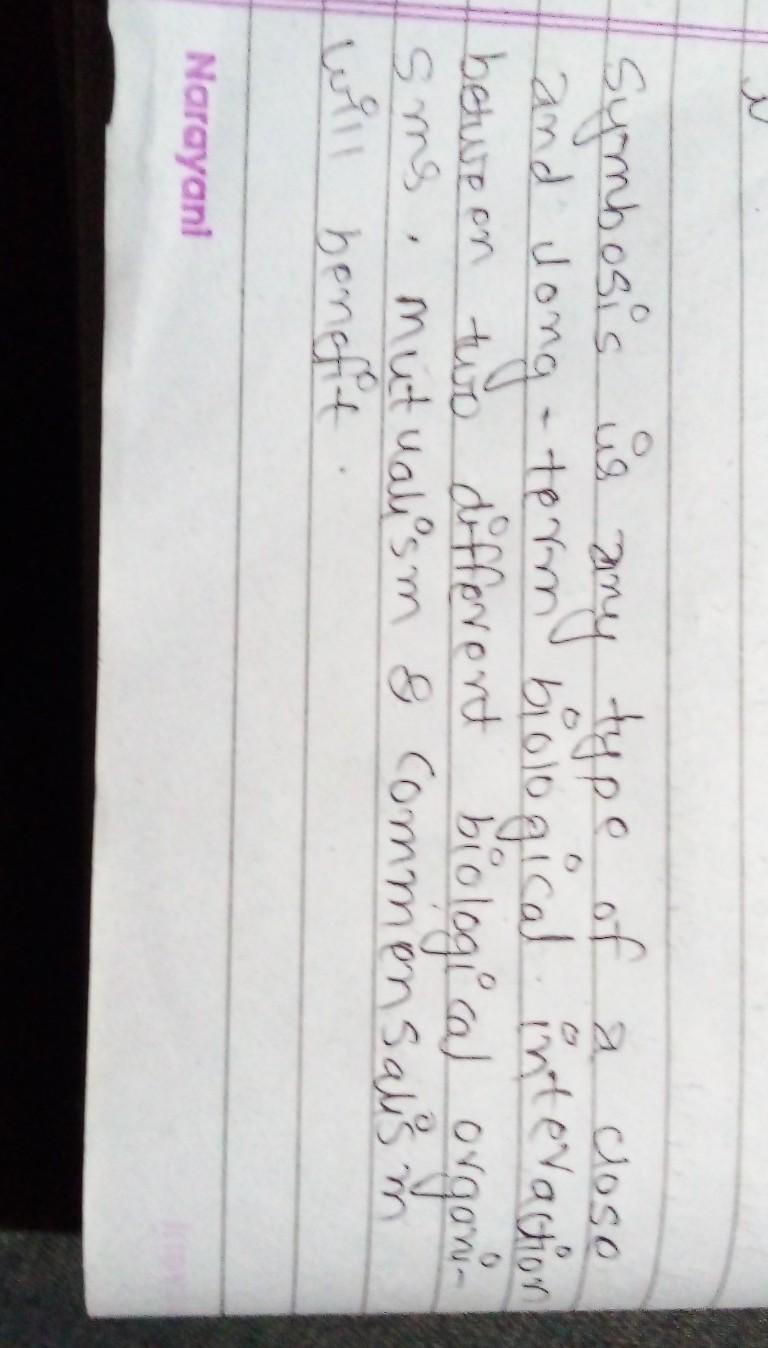 Symbosis is any type of a close
and long-term biological interaction
between two different biological organi-
sms, mutualism & commensalism
will benefit.
Narayani